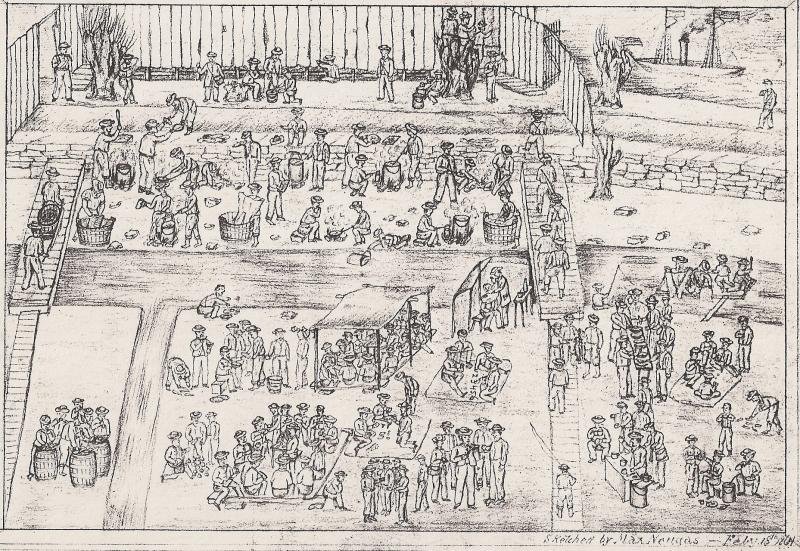 Sketched by Max Neugas — Feby. 15th 1864